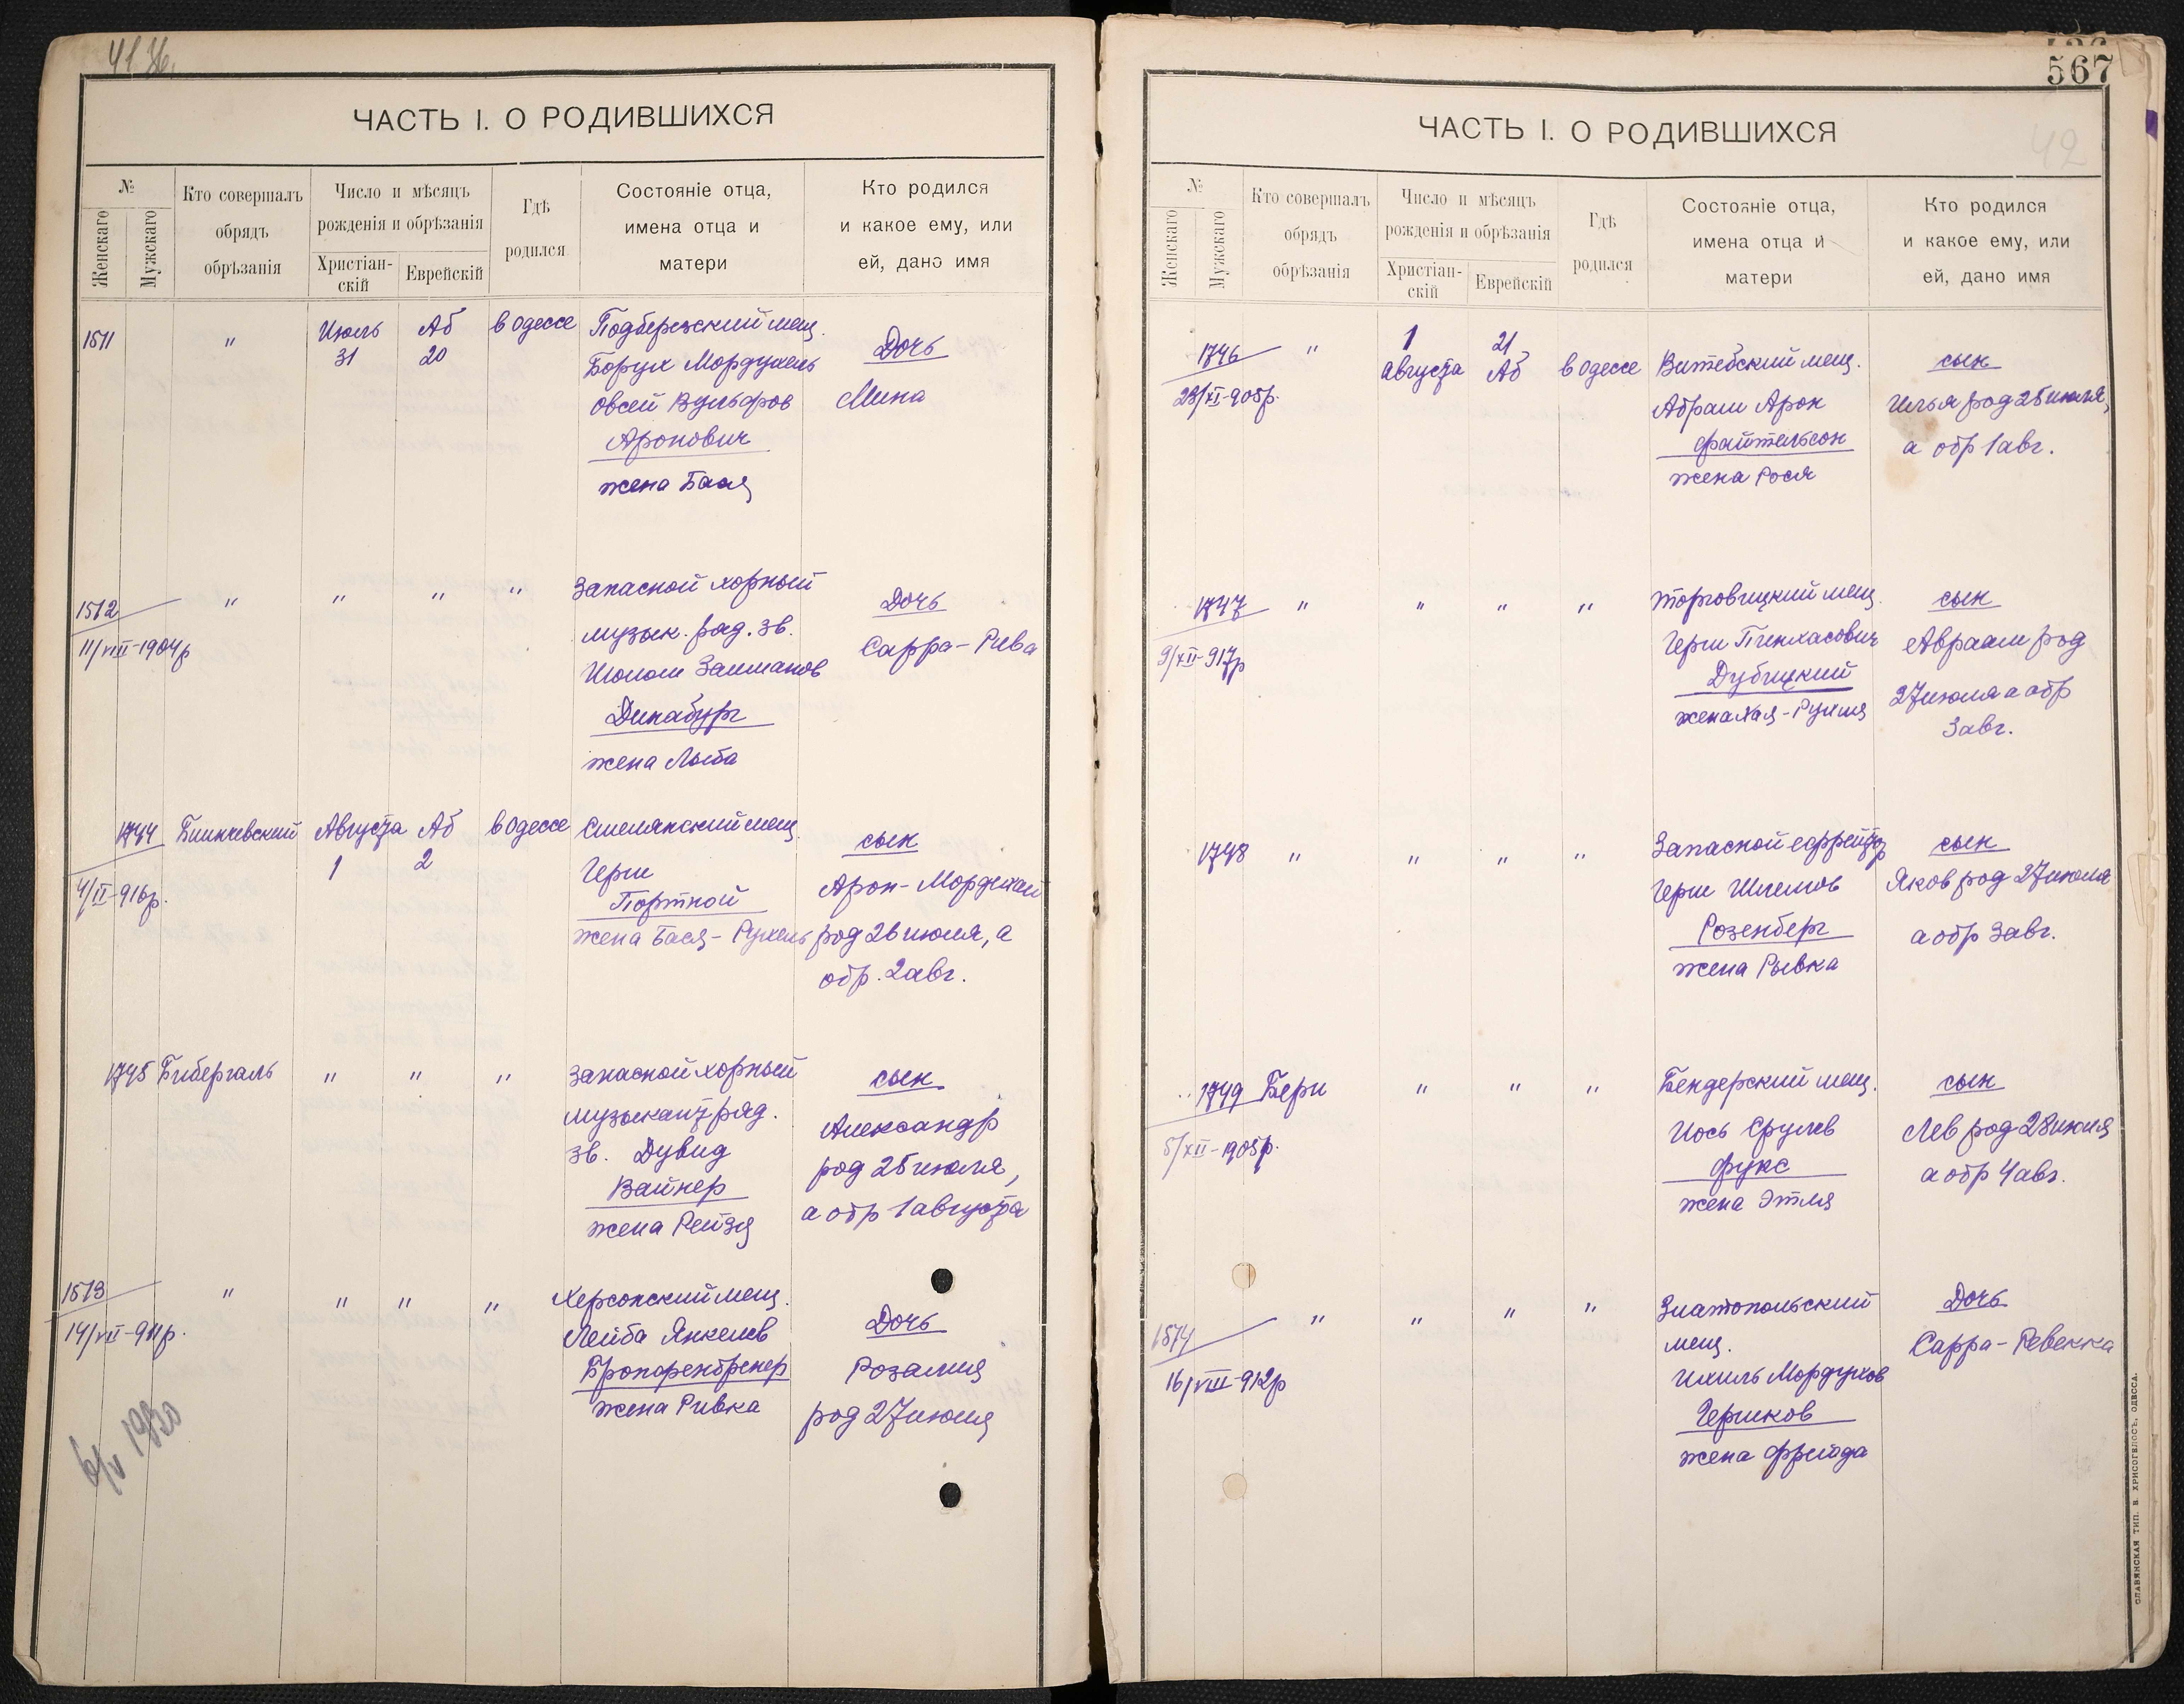 ЧАСТЬ I. О РОДИВШИХСЯ
№
Женскаго
Мужскаго
Кто совершалъ
обрядъ
обрѣзанія
Число и мѣсяцъ
рожденія и обрѣзанія
Христіан-
скій
Еврейскій
Гдѣ
родился
Состояніе отца,
имена отца и
матери
Кто родился
и какое ему, или
ей, дано имя
1511
"
Июль
31
Аб
20
в Одессе
Подберезский мещ.
Борух Мордухель
Овсей Вульфов
Аронович
жена Бася
Дочь
Мина
1512
11/VIII-1904р
"
"
"
"
Запасной хорный
музык. ряд. зв.
Шолом Залманов
Динабург
жена Лыба
Дочь
Сарра-Рива
1744
4/II-916р.
Августа
1
Аб
2
в Одессе
Смелянский мещ.
Герш
Портной
жена Бася-Рухель
сын
Арон-Мордехай
род 26 июля, а
обр. 2 авг.
1745
Бибергаль
"
"
"
Запасной хорный
музыкант ряд.
зв. Дувид
Вайнер
жена Рейзя
сын
Александр
род 25 июля,
а обр 1 августа
1513
14/VII-911р.
"
"
"
"
Херсонский мещ.
Лейба Янкелев
жена Ривка
Дочь
Розалия
род 27 июля
6/V 1930
567
42
ЧАСТЬ I. О РОДИВШИХСЯ
№
Женскаго
Мужскаго
Кто совершалъ
обрядъ
обрѣзанія
Число и мѣсяцъ
рожденія и обрѣзанія
Христіан-
скій
Еврейскій
Гдѣ
родился
Состояніе отца,
имена отца и
матери
Кто родился
и какое ему, или
ей, дано имя
1746
23/XI-905р.
"
1
августа
21
Аб
в Одессе
Витебский мещ.
Абрам Арон
Файтельсон
жена Рося
сын
Илья род 25 июля,
а обр 1 авг.
1747
9/XII-917р
"
"
"
"
Торговицкий мещ.
Герш Пинхасович
Дубицкий
жена Хая-Рухля
сын
Авраам род
27 июля а обр
3 авг.
1748
"
"
"
"
Запасной ефрейтор
Герш Шлемов
Розенберг
жена Рывка
сын
Яков род 27 июля
а обр 3 авг.
1749
5/XII-1905р.
Берн
"
"
"
Бендерский мещ.
Иось Срулев
Фукс
жена Этля
сын
Лев род 28 июля
а обр 4 авг.
1514
16/VIII-912р
"
"
"
"
Златопольский
мещ.
Ихиль Мордухов
Гершков
жена Фрейда
Дочь
Сарра-Ревекка
СЛАВЯНСКАЯ ТИП. В. ХРИСОГЕЛОСЪ, ОДЕССА.